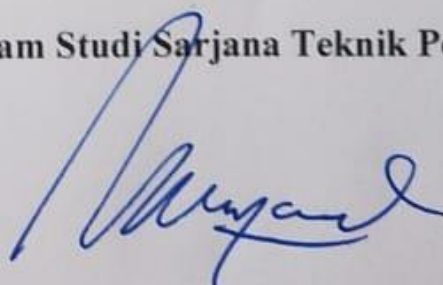 am Studi Sarjana Teknik Pe